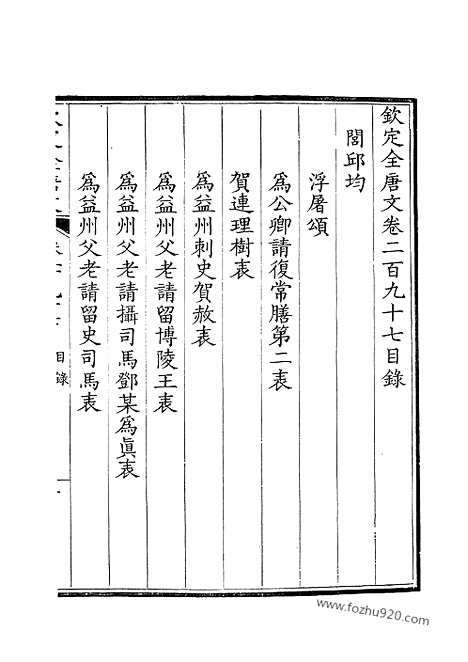 欽定全唐文卷二百九十七目錄
閻邱均
浮屠頌
為公卿請復常膳第二表
賀連理樹表
為益州刺史賀赦表
為益州父老請留博陵王表
為益州父老請攝司馬鄧某為眞表
為益州父老請留史司馬表
目錄
www.fozhu920.com